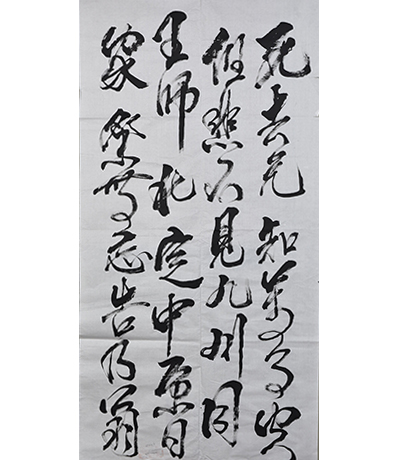 死去元知萬事空
但悲不見九州同
王師北定中原日
家祭無忘告乃翁